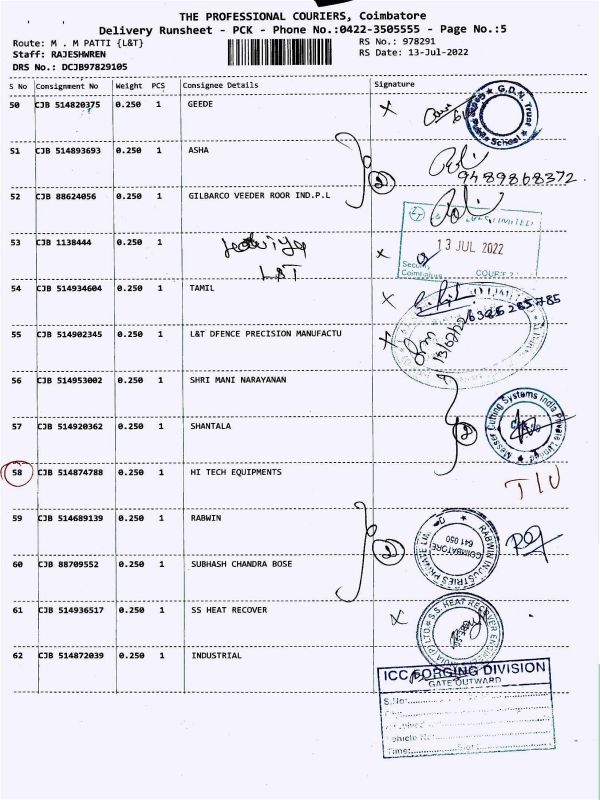 THE PROFESSIONAL COURIERS, Coimbatore
Delivery Runsheet - PCK - Phone No.:0422-3505555 - Page No.:5
Route: M . M PATTI {L&T}
RS No.: 978291
Staff: RAJESHWREN
RS Date: 13-Jul-2022
DRS No.: DCJB97829105
S No Consignment No Weight PCS Consignee Details Signature
50 CJB 514820375 0.250 1 GEEDE
G.D.N. Trust
School
51 CJB 514893693 0.250 1 ASHA
9489868372
2
52 CJB 88624056 0.250 1 GILBARCO VEEDER ROOR IND.P.L
LIMITED
53 CJB 1138444 0.250 1
L&T
13 JUL 2022
Security
Coimbatore
54 CJB 514934604 0.250 1 TAMIL
6386285785
55 CJB 514902345 0.250 1 L&T DFENCE PRECISION MANUFACTU
56 CJB 514953002 0.250 1 SHRI MANI NARAYANAN
57 CJB 514920362 0.250 1 SHANTALA
2
Messer Cutting Systems India Private Limited
58 CJB 514874788 0.250 1 HI TECH EQUIPMENTS
59 CJB 514689139 0.250 1 RABWIN
2
RABWIN INDUSTRIES PRIVATE LIMITED
COIMBATORE
641 050
60 CJB 88709552 0.250 1 SUBHASH CHANDRA BOSE
61 CJB 514936517 0.250 1 SS HEAT RECOVER
S.S. HEAT RECOVER
(INDIA) (P) LTD
62 CJB 514872039 0.250 1 INDUSTRIAL
ICC FORGING DIVISION
GATE OUTWARD
S.No:
Vehicle No:
Time: